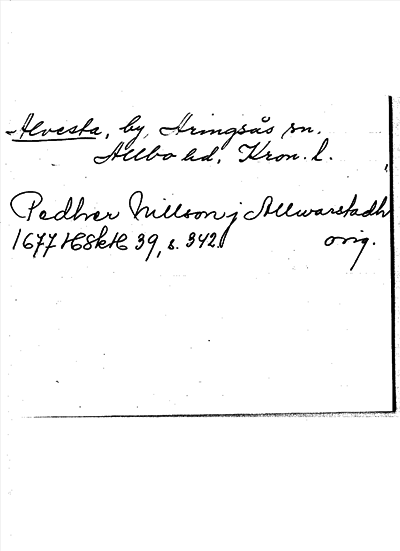 Alvesta, by, Aringsås sn.
Allbo hd, Kron. l.
Pedher Nillson j Allwarstadh
1677 HSkH 39, s. 342. orig.